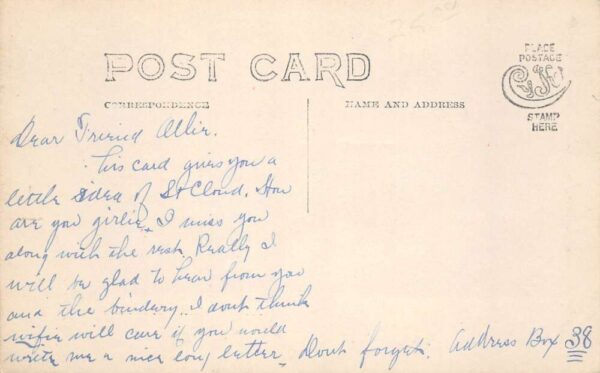 POST CARD
CORRESPONDENCE
NAME AND ADDRESS
PLACE
POSTAGE
STAMP
HERE
Dear Friend Ollie.
This card gives you a
little idea of St Cloud. How
are you girlie. I miss you
along with the rest. Really I
will be glad to hear from you
and the bindery.. I dont think
wifie will care if you would
write me a nice long letter. Dont forget. Address Box 38